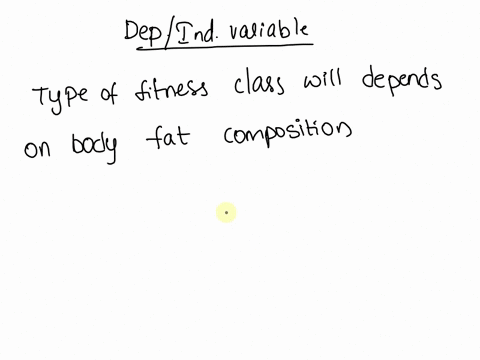 Dep/Ind. variable
Type of fitness class will depends
on body fat composition